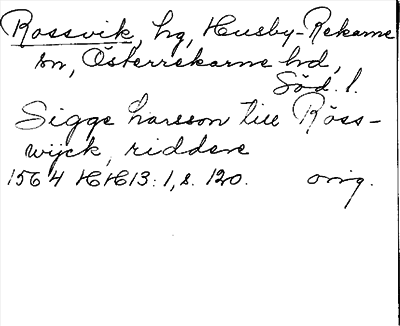 Rossvik, hg, Husby-Rekarne
sn, Österrekarne hd,
Söd. l.
Sigge Larsson till Röss-
wijck, riddere
1564 HH13:1, s. 120. orig.